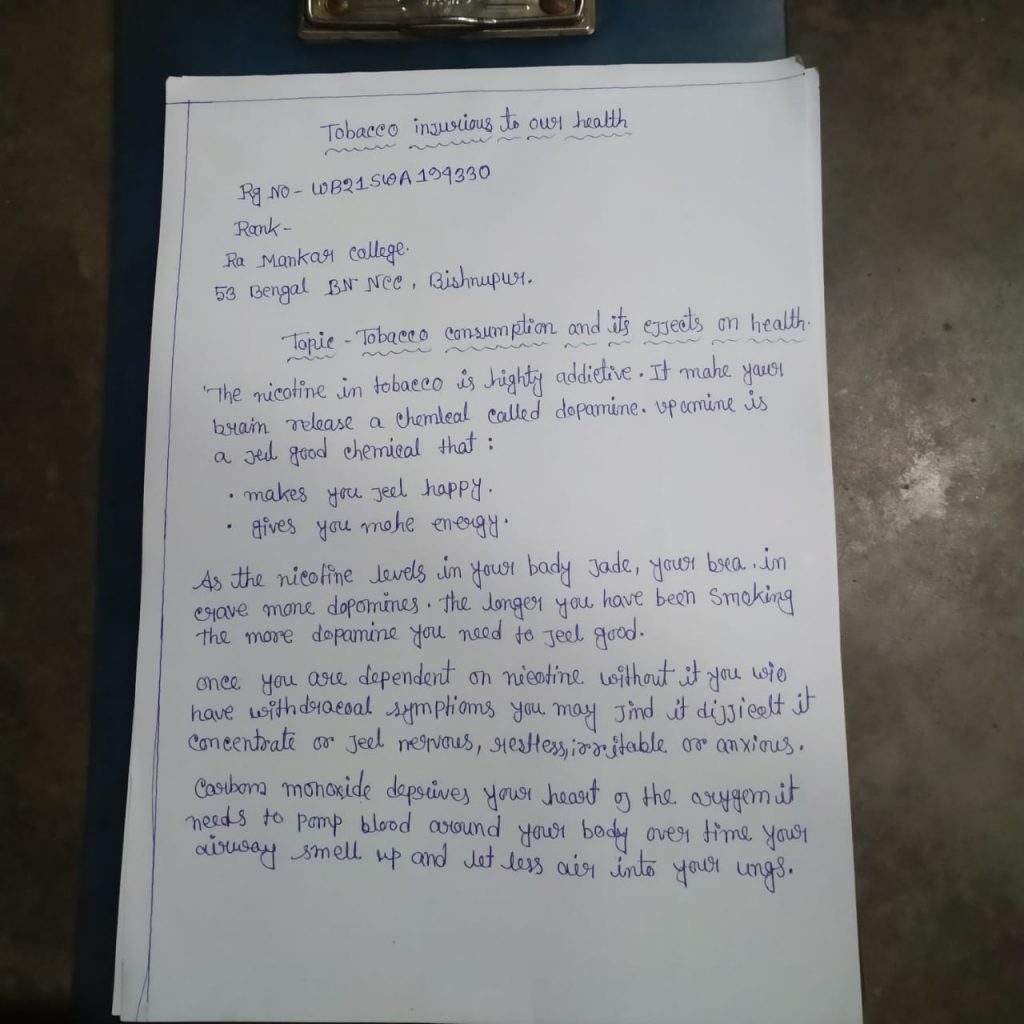 Tobacco injurious to our health
Rg No - WB21SWA194330
Rank-
Ra Mankar College.
53 Bengal BN NCC, Bishnupur.
Topic - Tobacco consumption and its effects on health.
The nicotine in tobacco is highty addictive. It mahe your
brain release a chemleal called dopamine. upamine is
a feel good chemical that :
• makes you feel happy.
• gives you mohe energy.
As the nicotine levels in your bady fade, your brea.in
crave mone dopomines. The longer you have been smoking
the more dopamine you need to feel good.
once you are dependent on nicotine without it you wio
have withdracoal symptioms you may find it difficelt it
concentrate or feel nervous, restless, irritable or anxious.
Carbons monoxide deprives your heart of the arygem it
needs to pomp blood around your body over time your
airway smell up and let less air into your ungs.